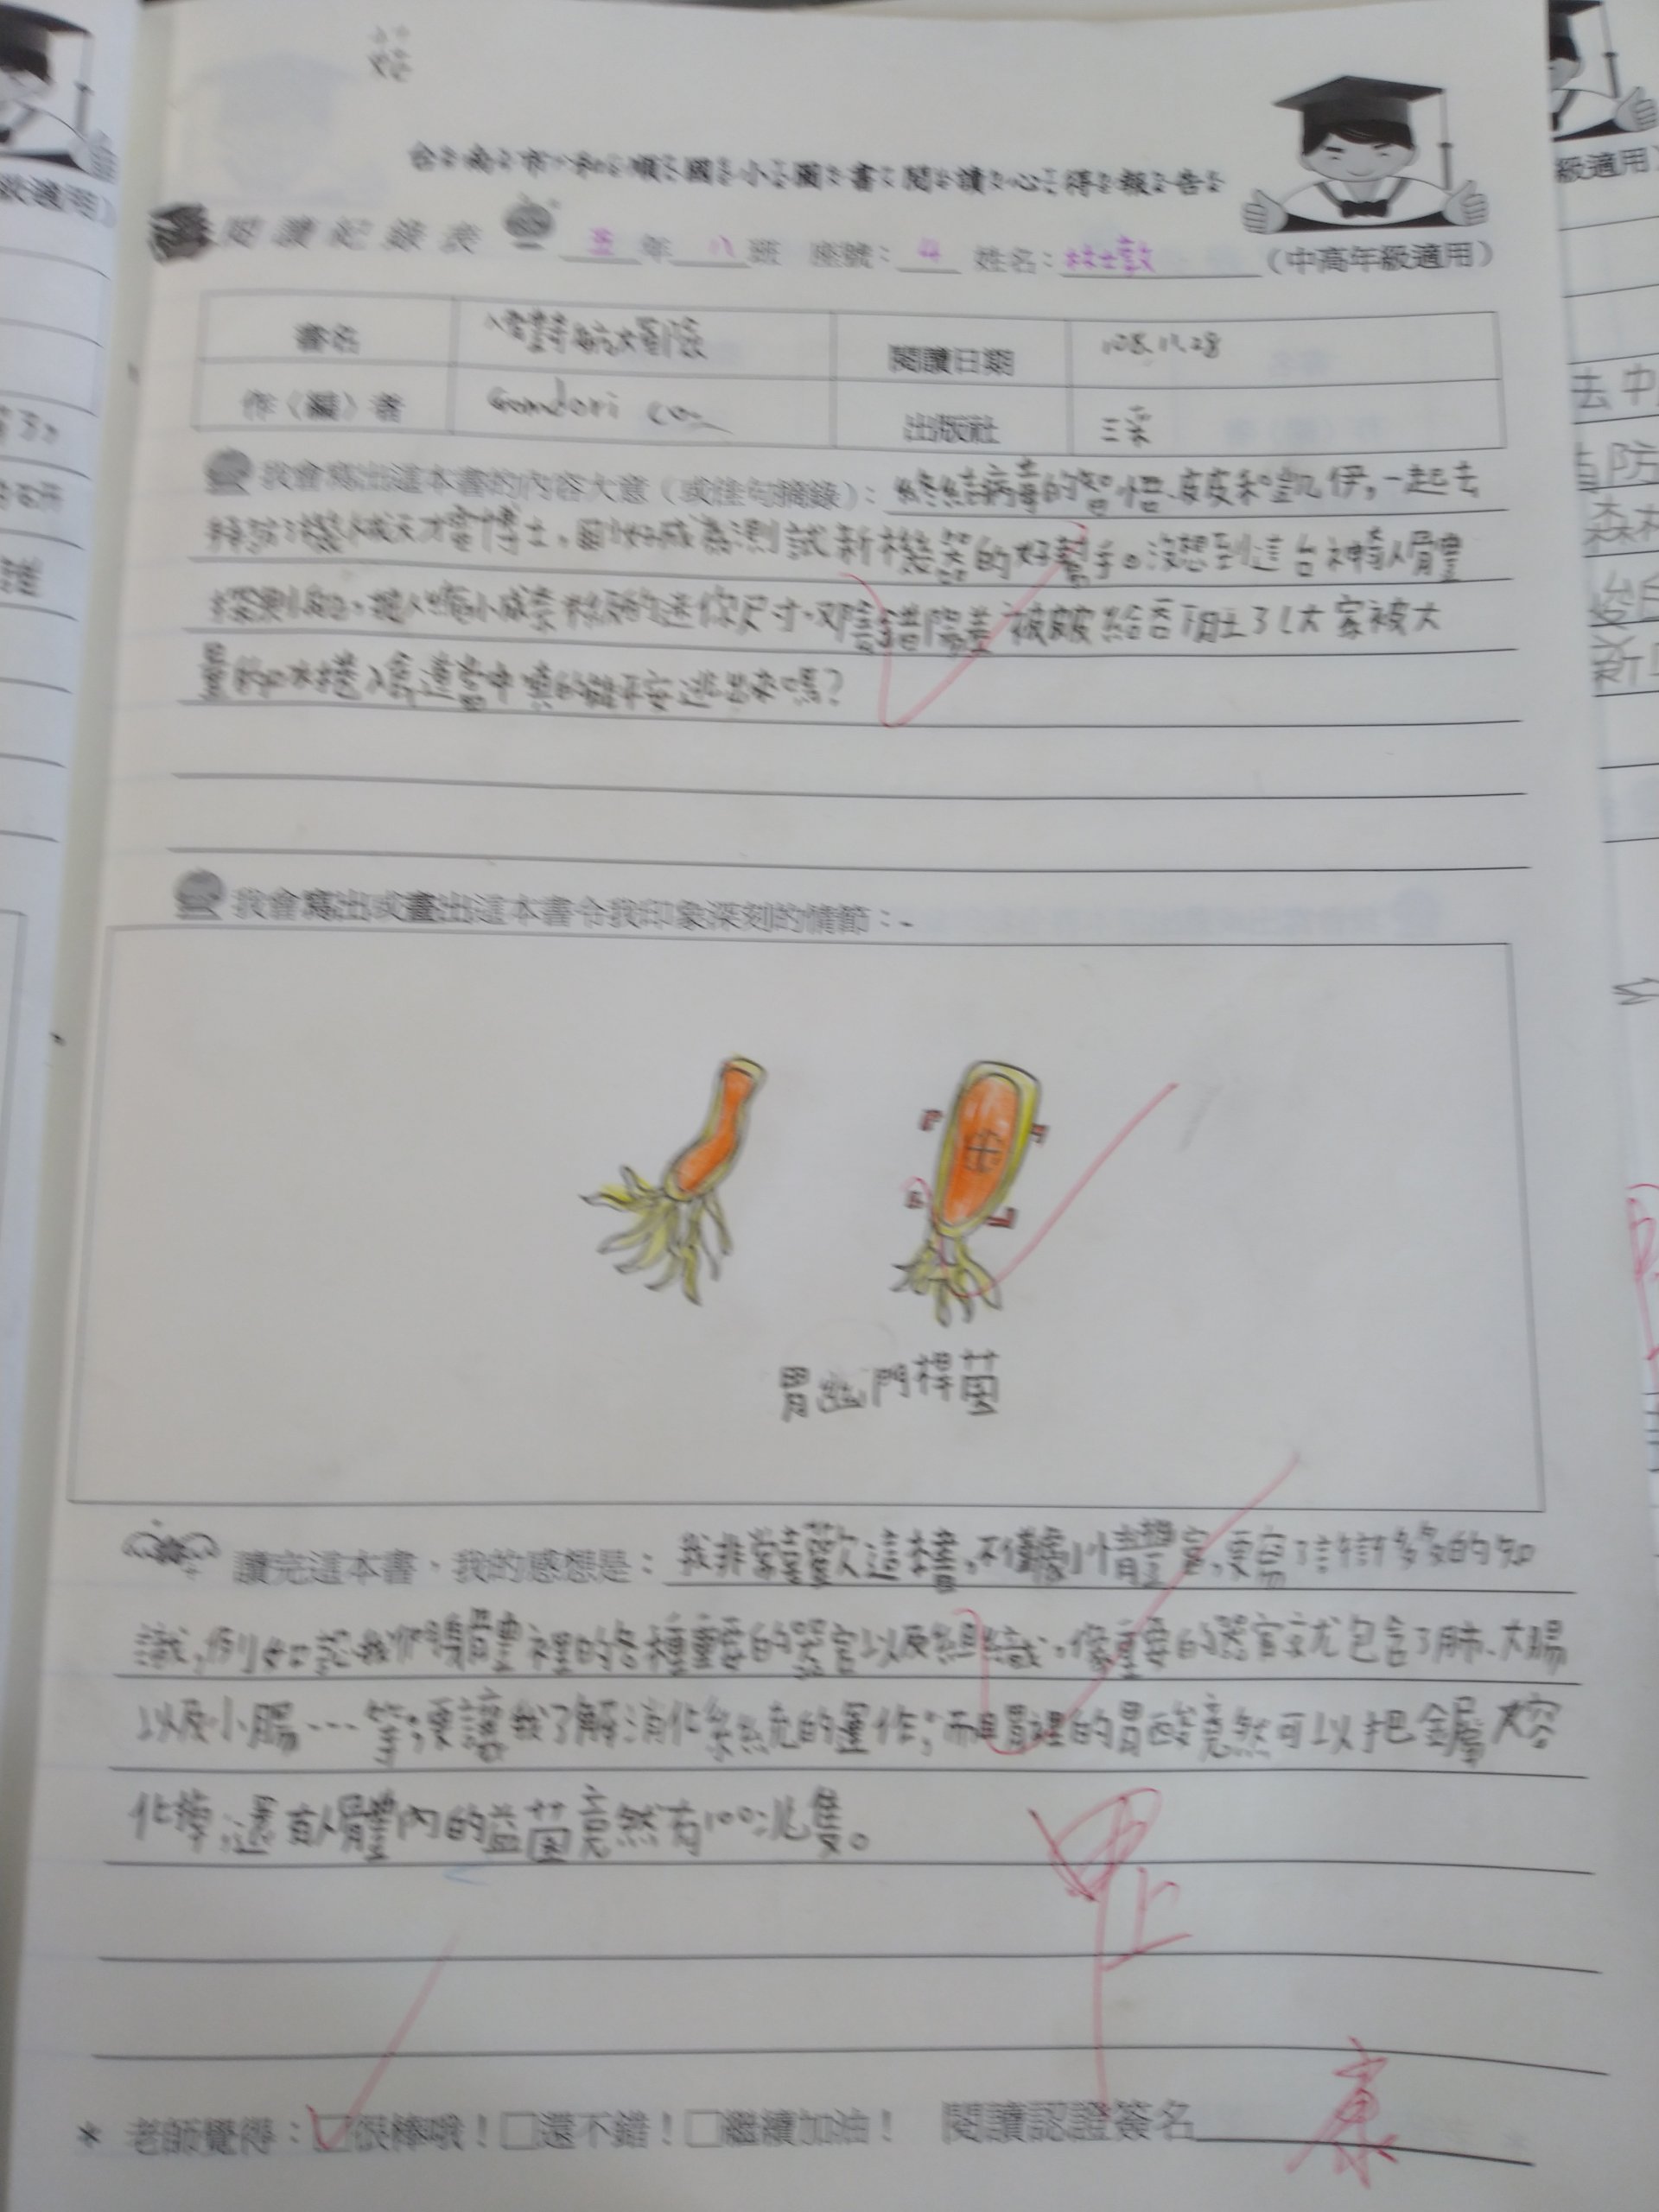 好
台南市和順國小圖書閱讀心得報告
閱讀紀錄表 五年八班 座號：4 姓名：林士敦 （中高年級適用）
書名 人體奇航大冒險 閱讀日期 108.11.28
作（編）者 Gomdori co. 出版社 三采
我會寫出這本書的內容大意（或佳句摘錄）：終結病毒的智悟、皮皮和凱伊，一起去
拜訪機械天才雷博士，剛好成為測試新機器的好幫手。沒想到這台神奇人體
探測船，把人縮小成素粒般的迷你尺寸，又陰錯陽差被皮皮給吞下肚了！大家被大
量的水捲入腸道當中真的能平安逃出來嗎？
我會寫出或畫出這本書令我印象深刻的情節：
胃幽門桿菌
讀完這本書，我的感想是：我非常喜歡這本書，不僅劇情豐富，更寫了許許多多的知
識，例如說我們身體裡的各種重要的器官以及組織，像重要的器官就包含了肺、大腸
以及小腸…等；更讓我了解消化系統的運作；而且胃裡的胃酸竟然可以把金屬溶
化掉；還有人體內的益菌竟然有100兆隻。
甲上
* 老師覺得：☑很棒哦！□還不錯！□繼續加油！ 閱讀認證簽名 康
級適用）
級適用）